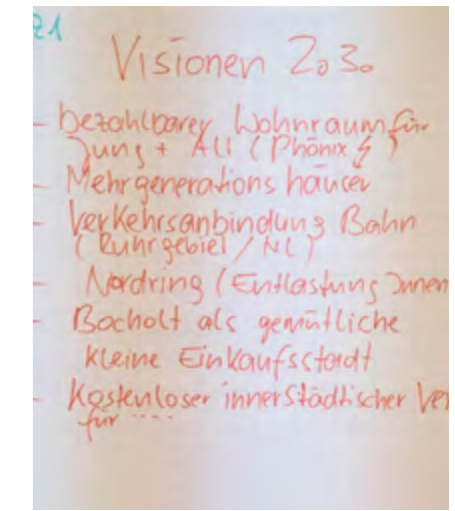 21
Visionen 2030
- bezahlbarer Wohnraum für
Jung + Alt (Phönix ↯)
- Mehrgenerationshäuser
- Verkehrsanbindung Bahn
(Ruhrgebiet / NL)
- Nordring (Entlastung Innen
- Bocholt als gemütliche
kleine Einkaufsstadt
- Kostenloser innerstädtischer Ver
für ....